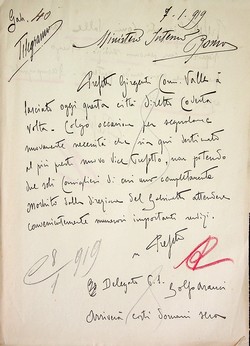 Gab. 40
7-1-919
Telegramma
Ministero Interno
Roma
Prefetto Girgenti Comm. Vallo à
lasciato oggi questa città diretto codesta
volta. Colgo occasione per segnalare
nuovamente necessità che sia qui destinato
al più presto nuovo Vice Prefetto, non potendo
due soli Consiglieri di cui uno completamente
assorbito dalla direzione del Gabinetto attendere
convenientemente numerosi importanti
Prefetto
8/1 919
Delegato P.S.
Golfo Aranci
Arriverà costì domani sera